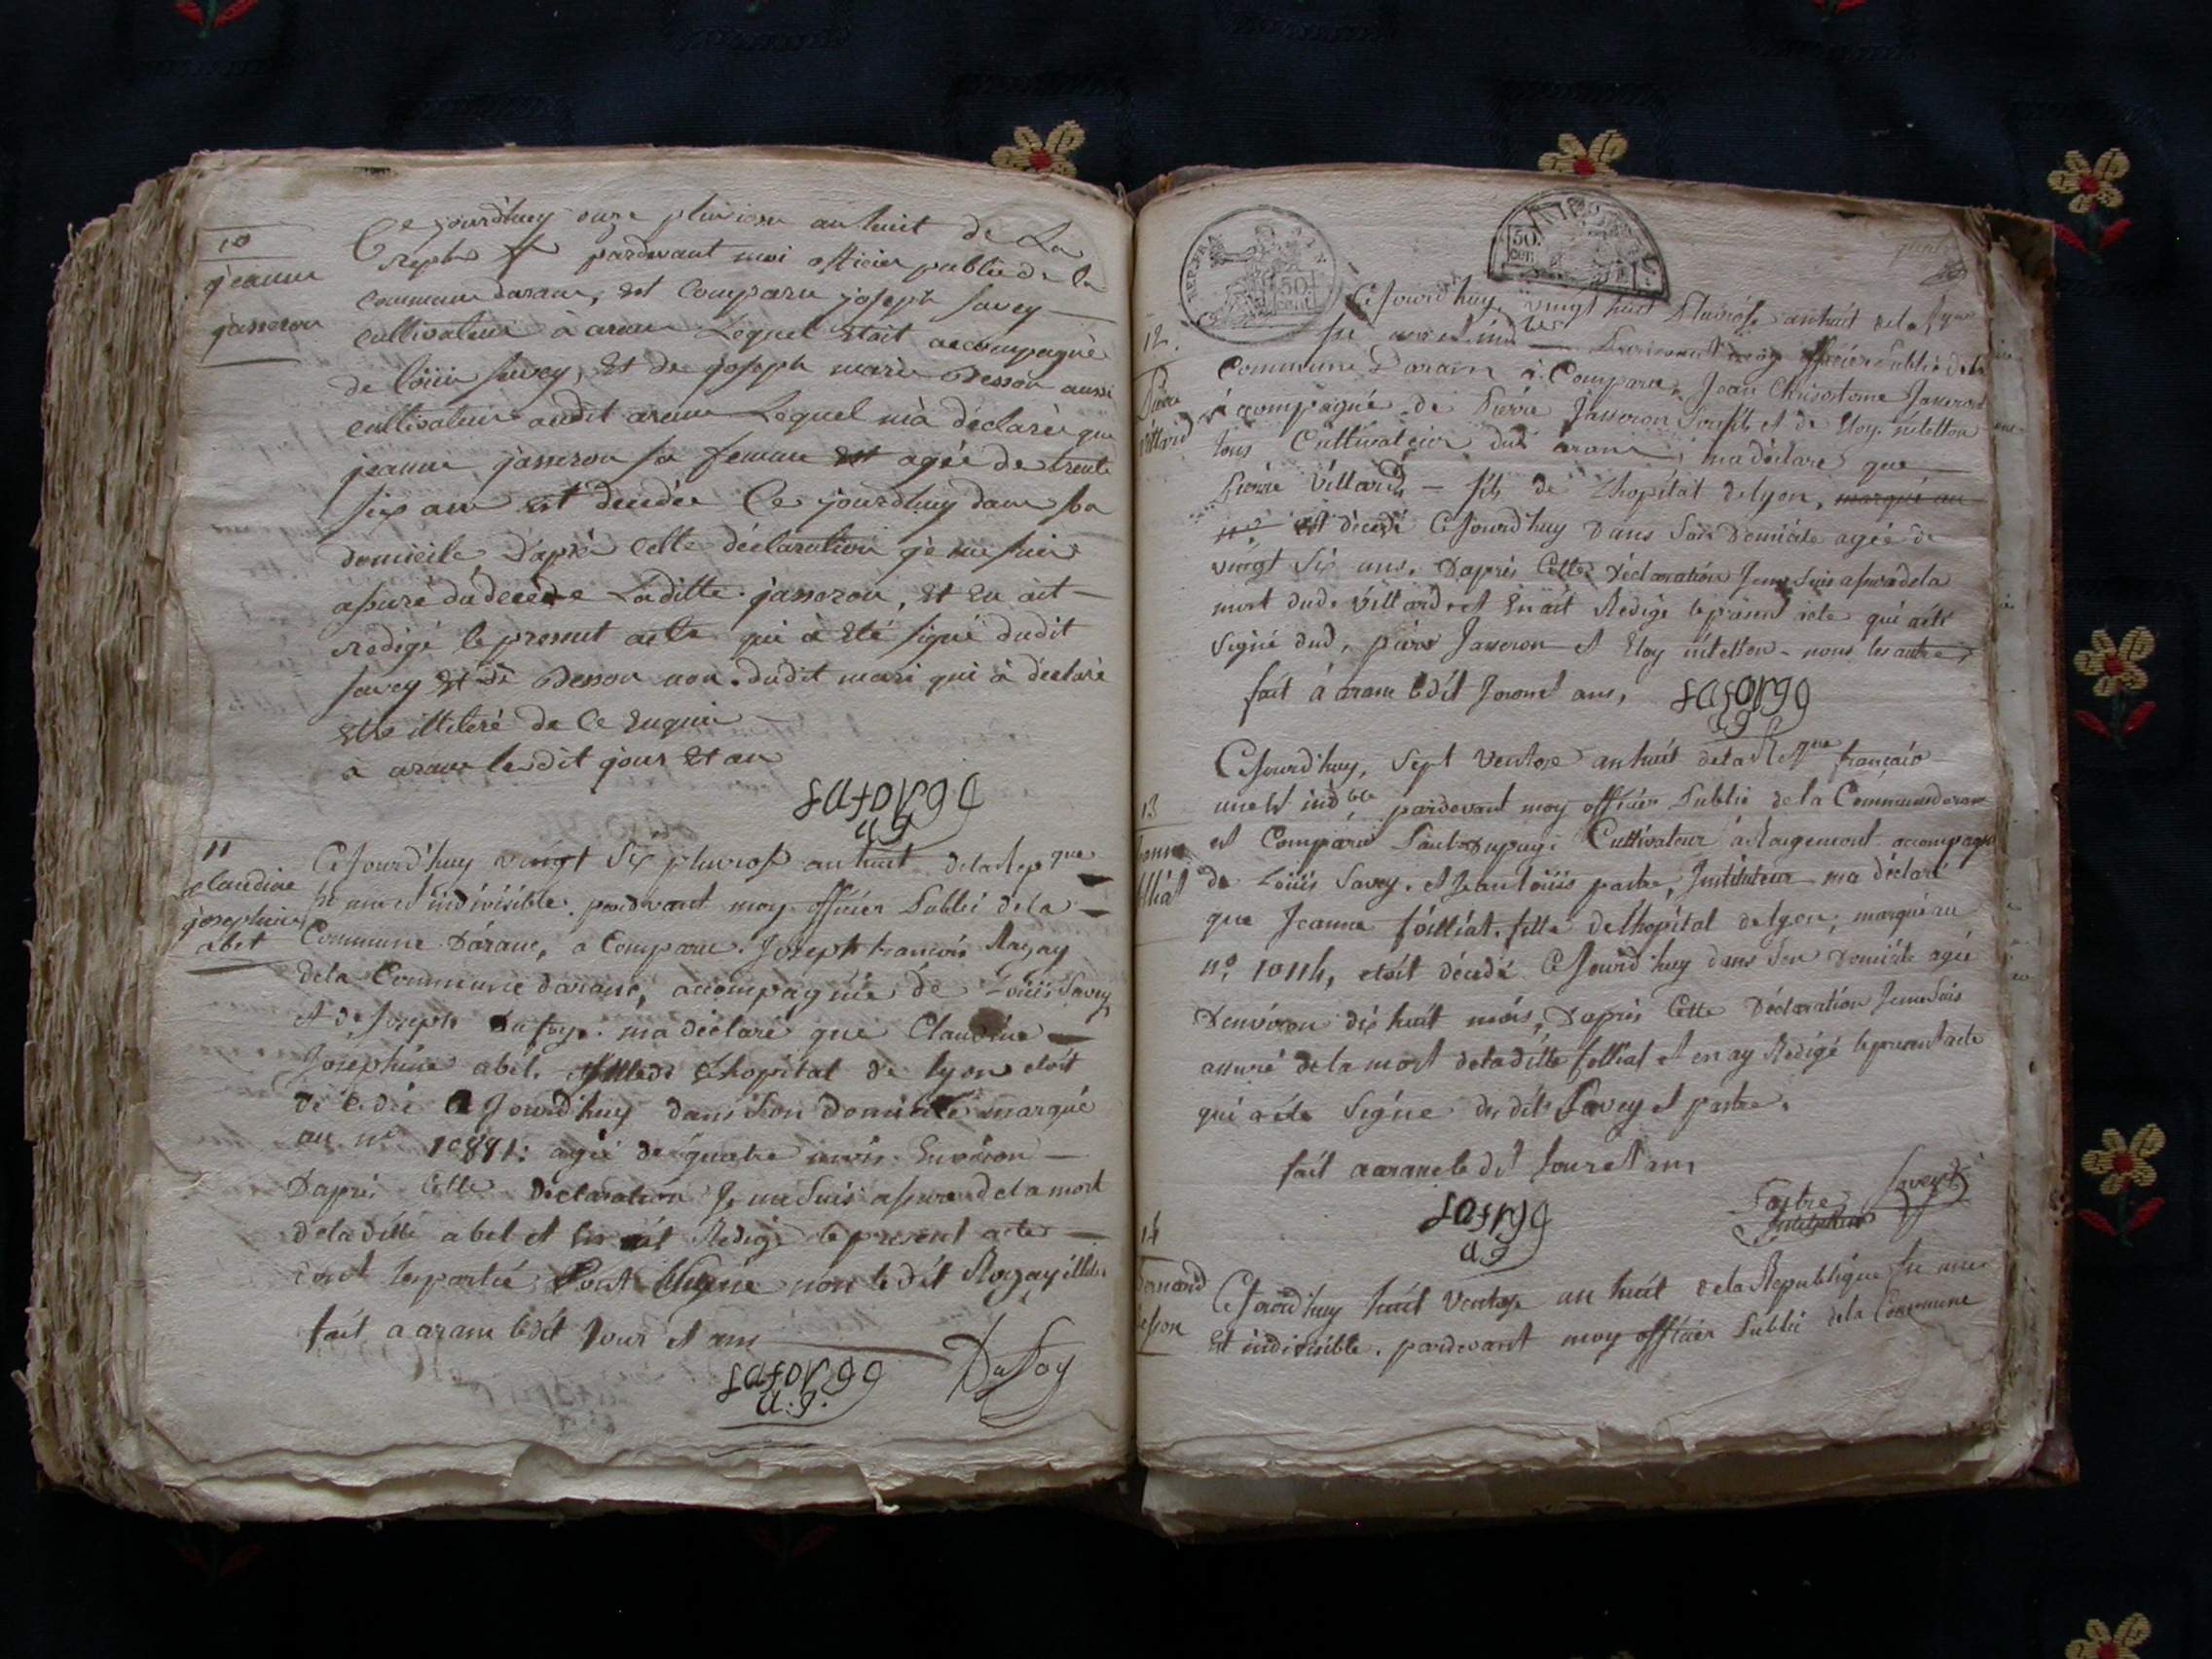 10
jeanne
jasseron
Ce jourdhuy onze pluviose an huit de La
Repu pardevant moi officier public de la
commune darane, est Comparu joseph savey
cultivateur à arane Lequel Etoit accompagné
de loüis savey, Et de joseph marie Besson aussi
cultivateur audit arane Lequel m'a déclaré que
jeanne jasseron sa femme Est agée de trente
six ans Est decedée Ce jourdhuy dans sa
domicile, d'après Cette déclaration je me suis
assuré du décede Laditte jasseron, Et En ait
redigé le present acte qui à Eté signé dudit
savey Et de Besson non dudit mari qui à déclaré
Etre illiteré de Ce Enquis
à arane ledit jour Et an
11
claudine
josephine
abel
Cejourd'huy vingt Six pluviose an huit de la Rep que
fe une et indivisible. pardevant moy officier Public de la
Commune Darane, a Comparu. Joseph francois Ragay
de la Commune darane, accompagnié de Loüis Savey
Et de Joseph Dufay. ma déclaré que Claudine
Joséphine abel. fille de Lhopital de lyon etoit
décédée Cejourd'huy dans Son domicile marqué
au no 10881: agée de quatre mois Environ
D'après Cette Déclaration Je me Suis assuré de la mort
de la ditte abel et En ait Redigé le present acte
dont les parties Sont Signé non le dit Ragay illite
fait a arane ledit Jour et an
Dufay
REP. FRA
50 cent
50. cen
12.
Pierre
villard
Cejourd'huy, vingt huit Pluviose an huit de la Rque
fse une et ind ble Pardevant moy officier Public de la
Commune Darane à Comparu Jean Chrisostome Jasseron
accompagné de Pierre Jasseron Son fils et de Eloy
tous Cultivateur dud arane, ma déclaré que
Pierre Villard fils de Lhopital de lyon, marqué au
no est décédé Cejourd'huy Dans Son Domicile agée de
vingt Six ans. D'après Cette Déclaration Je me Suis assuré de la
mort dud. Villard et En ait Redigé le présent acte qui a été
Signé dud. pierre Jasseron et Eloy non les autres
fait à arane ledit Jour et ans,
13
Jeanne
folliat
Cejourd'huy, Sept Ventose an huit de la Rque francaise
une et ind ble pardevant moy officier Public de la Commune darane
est Comparu Paul Dupuy Cultivateur à Rougemont accompagné
de Loüis Savey. et Jean loüis pastre, Instituteur ma déclaré
que Jeanne folliat. fille de Lhopital de lyon, marqué au
no 10114, etoit décédé Cejourd'huy dans Son Domicile agée
D'environ dix huit mois, D'après Cette Déclaration Je me Suis
assuré de la mort de la ditte folliat et en ay Redigé le present acte
qui a été Signé des dits Savey et pastre.
fait a arane le dit Jour et an
Pastre Savey
Instituteur
14
Bernard
besson
Cejourd'huy huit Ventose an huit de la Republique fse une
Et indivisible. pardevant moy officier Public de la Commune